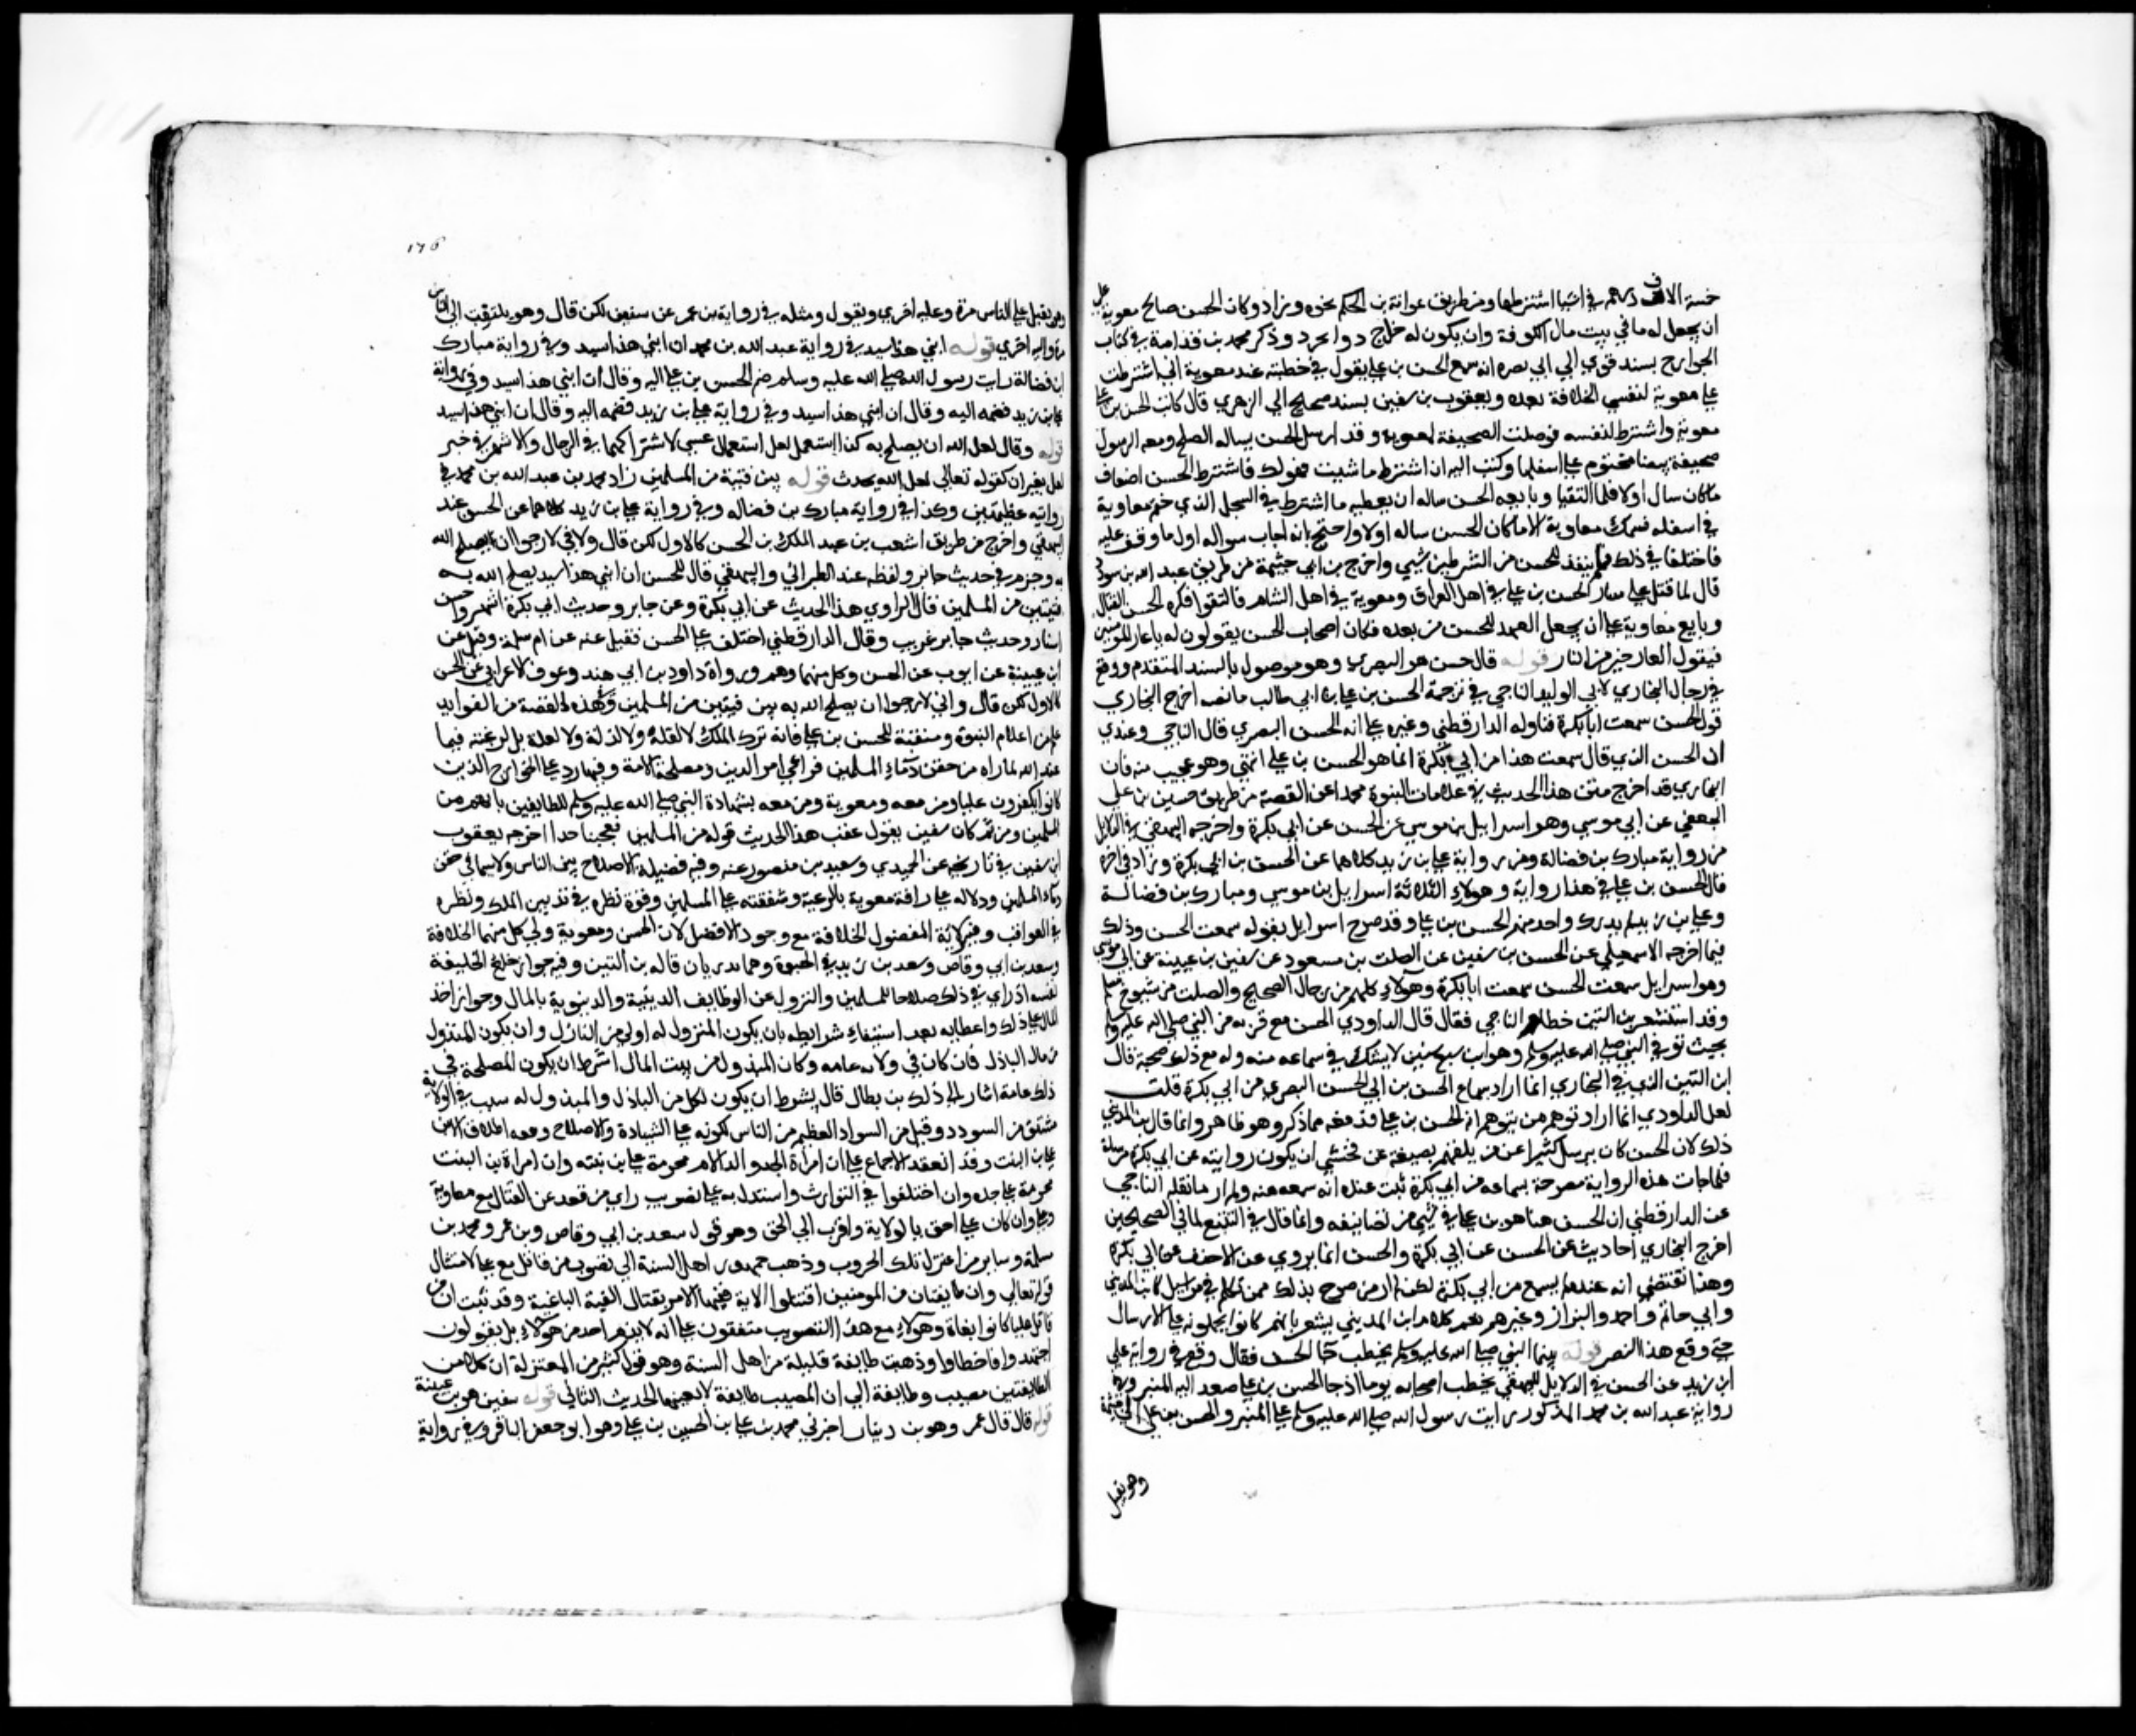 خمسة الاف درهم في اشيا اشترطها ومن طريق عوانة بن الحكم نحوه وزاد وكان الحسن صالح معوية على
ان يجعل له ما في بيت مال الكوفة وان يكون له خراج دوابجرد وذكر محمد بن قدامة في كتاب
الخوارج بسند قوي الي ابي بصره انه سمع الحسن بن علي يقول في خطبته عند معوية اني اشترطت
علي معوية لنفسي الخلافة بعده ويعقوب بن سفين بسند صحيح الي الزهري قال كاتب الحسن بن علي
معوية واشترط لنفسه فوصلت الصحيفة لمعوية وقد ارسل الحسن يساله الصلح ومعه الرسول
صحيفة بيضا مختوم علي اسفلها وكتب اليه ان اشترط ما شيت فهو لك فاشترط الحسن اضعاف
ما كان سال اولا فلما التقيا وبايعه الحسن ساله ان يعطيه ما اشترط في السجل الذي ختم معاوية
في اسفله فتمسك معاوية الا ما كان الحسن ساله اولا واحتج بانه اجاب سواله اول ما وقف عليه
فاختلفا في ذلك فلم ينفذ للحسن من الشرطين شيي واخرج بن ابي خيثمة من طريق عبد الله بن شوذب
قال لما قتل علي سار الحسن بن علي في اهل العراق ومعوية في اهل الشام فالتقوا فكره الحسن القتال
وبايع معاوية علي ان يجعل العهد للحسن من بعده فكان اصحاب الحسن يقولون له يا عار المومنين
فيقول العار خير من النار قوله قال حسن هو البصري وهو موصول بالسند المتقدم ووقع
في رجال البخاري لابي الوليد الباجي في ترجمة الحسن بن علي بن ابي طالب ما نصه اخرج البخاري
قول الحسن سمعت ابا بكرة فتاوله الدارقطني وغيره علي انه الحسن البصري قال الباجي وعندي
ان الحسن الذي قال سمعت هذا من ابي بكرة انما هو الحسن بن علي انتهي وهو عجيب منه فان
البخاري قد اخرج متن هذا الحديث في علامات النبوة مجردا عن القصة من طريق حسين بن علي
الجعفي عن ابي موسي وهو اسراييل بن موسي عن الحسن عن ابي بكرة واخرجه البيهقي في الدلايل
من رواية مبارك بن فضالة ومن رواية علي بن زيد كلاهما عن الحسن بن ابي بكرة وزاد في اخره
قال الحسن بن علي في هذا رواية وهولاء الثلاثة اسراييل بن موسي ومبارك بن فضالة
وعلي بن زيد لم يدرك واحد منهم الحسن بن علي وقد صرح اسراييل بقوله سمعت الحسن وذلك
فيما اخرجه الاسمعيلي عن الحسن بن سفين عن الصلت بن مسعود عن سفين بن عيينة عن ابي موسي
وهو اسراييل سمعت الحسن سمعت ابا بكرة وهولاء كلهم من رجال الصحيح والصلت من شيوخ مسلم
وقد استشعر بن التين خطا الباجي فقال قال الداودي الحسن مع قربه من النبي صلي الله عليه وسلم
بحيث توفي النبي صلي الله عليه وسلم وهو ابن سبع سنين لا يشك في سماعه منه وله مع ذلك صحبة قال
ابن التين الذي في البخاري انما اراد سماع الحسن بن ابي الحسن البصري من ابي بكرة قلت
لعل الداودي انما اراد توهم من يتوهم انه الحسن بن علي فدفعه بما ذكر وهو ظاهر وانما قال بن المديني
ذلك لان الحسن كان يرسل كثيرا عن من يلقهم بصيغة عن فخشي ان يكون روايته عن ابي بكرة مرسلة
فلما جات هذه الرواية مصرحة بسماعه من ابي بكرة ثبت عنده انه سمعه منه ولم ار ما نقله الباجي
عن الدارقطني ان الحسن هنا هو بن علي في شي من تصانيفه وانما قال في التتبع لما في الصحيحين
اخرج البخاري احاديث عن الحسن عن ابي بكرة والحسن انما يروي عن الاحنف عن ابي بكرة
وهذا تقتضي انه عنده لم يسمع من ابي بكرة لكن لم ار من صرح بذلك ممن تكلم في مراسيل كابن المديني
وابي حاتم واحمد والبزار وغيرهم نعم كلام ابن المديني يشعر بانهم كانوا يحملونه علي الارسال
حتي وقع هذا النصر قوله بينما النبي صلي الله عليه وسلم يخطب جا الحسن فقال وقع في رواية علي
ابن زيد عن الحسن في الدلايل للبيهقي يخطب اصحابه يوما اذ جا الحسن بن علي صعد اليه المنبر وفي
رواية عبد الله بن محمد المذكور رايت رسول الله صلي الله عليه وسلم علي المنبر والحسن بن علي الي
وهو يقبل
١٧٥
وهو يقبل علي الناس مرة وعليه اخري ويقول ومثله في رواية بن عمر عن سفين لكن قال وهو يلتفت الي الناس
مرة واليه اخري قوله ابني هذا سيد في رواية عبد الله بن محمد ان ابني هذا سيد وفي رواية مبارك
ابن فضالة رايت رسول الله صلي الله عليه وسلم ضم الحسن بن علي اليه وقال ان ابني هذا سيد وفي رواية
علي بن زيد فضمه اليه وقال ان ابني هذا سيد وفي رواية علي بن زيد فضمه اليه وقال ان ابني هذا سيد
قوله وقال لعل الله ان يصلح به كذا استعمل لعل استعمال عسي لاشتراكهما في الرجال والاشهر في خبر
لعل بغير ان كقوله تعالي لعل الله يحدث قوله بين فيتين من المسلمين زاد محمد بن عبد الله بن محمد في
روايته عظيمتين وكذا في رواية مبارك بن فضاله وفي رواية علي بن زيد كلاهما عن الحسن عند
البيهقي واخرج من طريق اشعب بن عبد الملك بن الحسن كالاول لكن قال واني لارجوا ان يصلح الله
به وجزم في حديث جابر ولفظه عند الطبراني والبيهقي قال للحسن ان ابني هذا سيد يصلح الله به
فيتين من المسلمين قال الراوي هذا الحديث عن ابي بكرة وعن جابر وحديث ابي بكرة اشهر واحسن
اسناد وحديث جابر غريب وقال الدارقطني اختلف علي الحسن فقيل عنه عن ام سلمة وقيل عن
ابن عيينة عن ايوب عن الحسن وكل منهما وهم ورواه داود بن ابي هند وعوف الاعرابي عن الحسن
كالاول لكن قال واني لارجوا ان يصلح الله به بين فيتين من المسلمين وفي هذه القصة من الفوايد
علم من اعلام النبوة ومنقبة للحسن بن علي فانه ترك الملك لا لقلة ولا لذلة ولا لعلة بل لرغبته فيما
عند الله لما راه من حقن دماء المسلمين فراعي امر الدين ومصلحة الامة وفيها رد علي الخوارج الذين
كانوا يكفرون عليا ومن معه ومعوية ومن معه بشهادة النبي صلي الله عليه وسلم للطايفين بانهم من
المسلمين ومن ثم كان سفين يقول عقب هذا الحديث قوله من المسلمين يعجبنا جدا اخرجه يعقوب
ابن سفين في تاريخه عن الحميدي وسعيد بن منصور عنه وفيه فضيلة الاصلاح بين الناس ولاسيما في حقن
دماء المسلمين ودلاله علي رافة معوية بالرعية وشفقته علي المسلمين وقوة نظره في تدبير الملك ونظره
في العواقب وفيه ولاية المفضول الخلافة مع وجود الافضل لان الحسن ومعوية ولي كل منهما الخلافة
وسعد بن ابي وقاص وسعد بن زيد في الحيوة وهما بدريان قاله بن التين وفيه جواز خلع الخليفة
نفسه اذا راي في ذلك صلاحا للمسلمين والنزول عن الوظايف الدينية والدنيوية بالمال وجواز اخذ
المال علي ذلك واعطايه بعد استيفاء شرايطه بان يكون المنزول له اولي من النازل وان يكون المبذول
من مال الباذل فان كان في ولاية عامه وكان المبذول من بيت المال اشترط ان يكون المصلحة في
ذلك عامة اشار الي ذلك بن بطال قال يشترط ان يكون لكل من الباذل والمبذول له سبب في الولاية
مشتق من السودد وقيل من السواد العظيم من الناس لكونه علي الشيادة والاصلاح ومعه اطلاق الابن
علي بن البنت وقد انعقد الاجماع علي ان امراة الجد والد الام محرمة علي بن بنته وان امراة بن البنت
محرمة علي جده وان اختلفوا في التوارث واستدل به علي تصويب راي من قعد عن القتال مع معاوية
وعلي وان كان علي احق بالولاية واقرب الي الحق وهو قول سعد بن ابي وقاص وبن عمر ومحمد بن
سلمة وساير من اعتزل تلك الحروب وذهب جمهور اهل السنة الي تصويب من قاتل مع علي لامتثال
قوله تعالي وان طايفتان من المومنين اقتتلوا الاية ففيها الامر بقتال الفية الباغية وقد ثبت ان من
قاتل عليا كانوا بغاة وهولاء مع هذا التصويب متفقون علي انه لا يذم احد من هولاء بل يقولون
اجتهدوا فاخطاوا وذهبت طايفة قليلة من اهل السنة وهو قول كثير من المعتزلة ان كلا من
الطايفتين مصيب وطايفة الي ان المصيب طايفة لا بعينها الحديث الثاني قوله سفين هو بن عيينة
قوله قال قال عمر وهو بن دينار اخبرني محمد بن علي بن الحسين بن علي وهو ابو جعفر الباقر وفي رواية